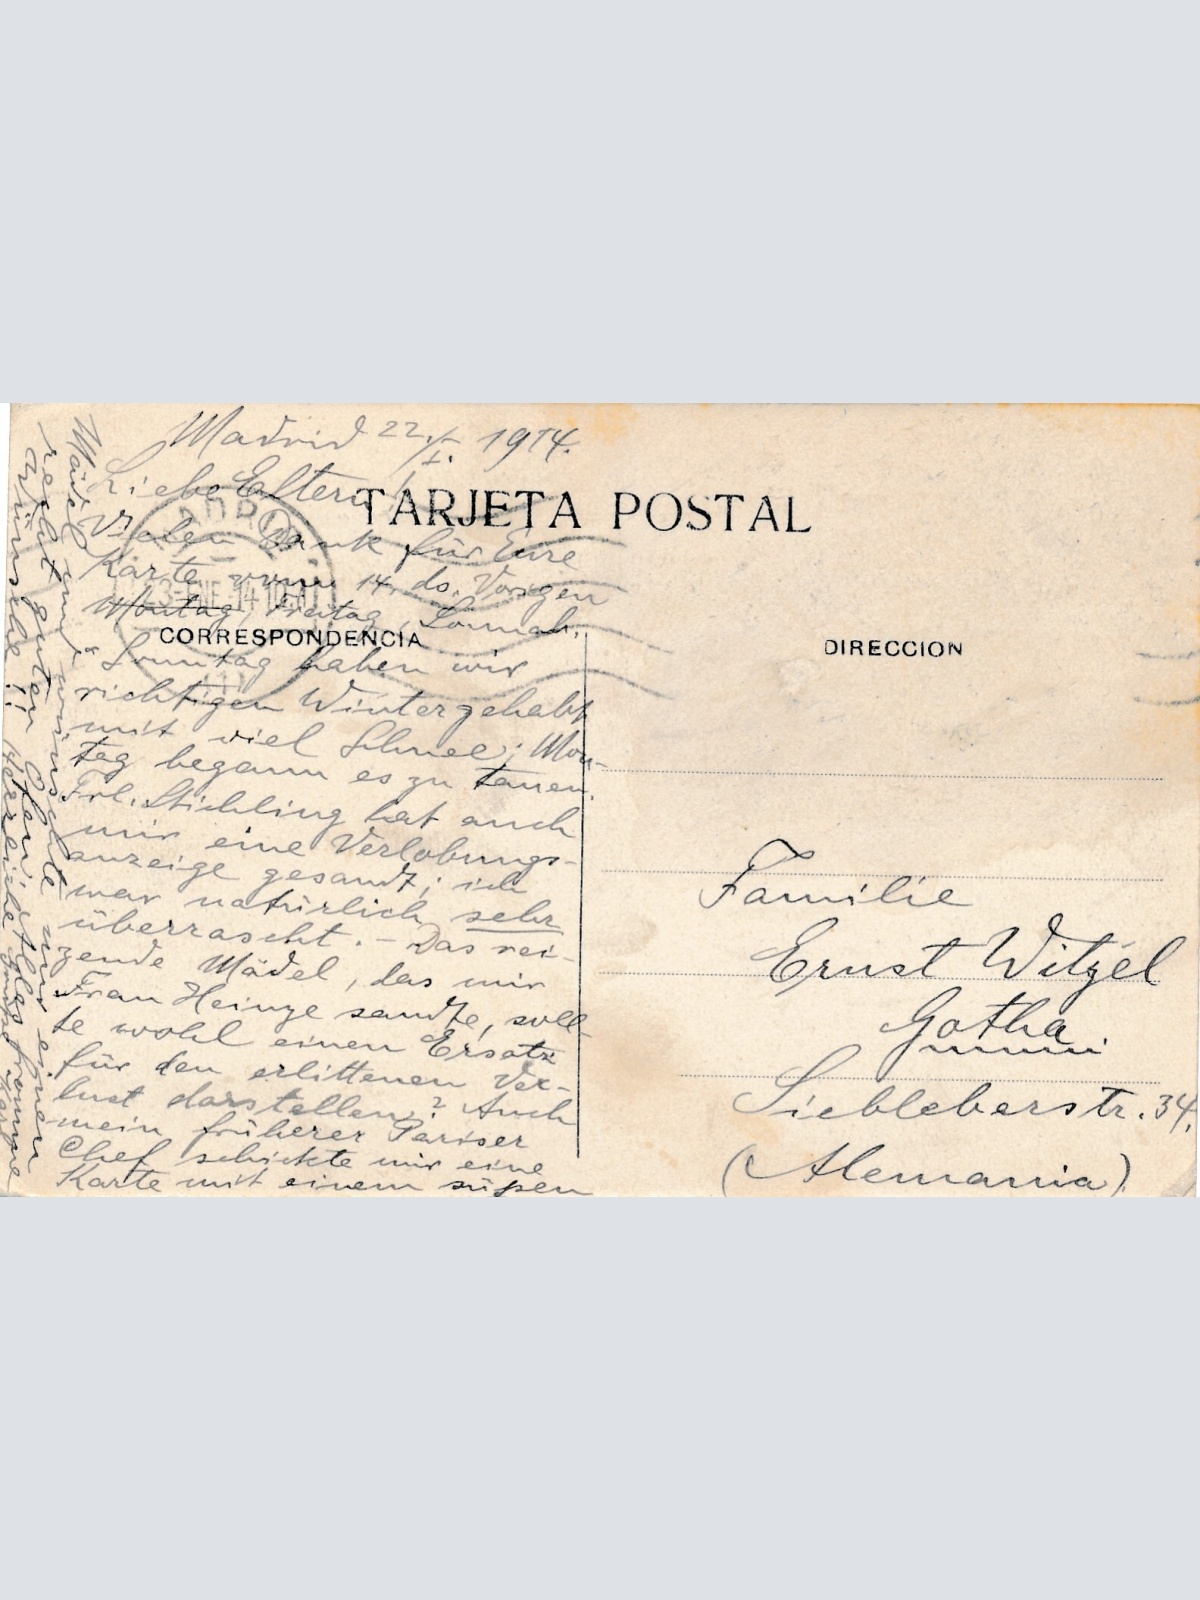 Madrid 22./I. 1914.
Liebe Eltern!
TARJETA POSTAL
Vielen Dank für Eure
Karte vom 14. ds. Vorigen
Montag, Freitag, Sonnab.,
CORRESPONDENCIA
& Sonntag haben wir
richtigen Winter gehabt
mit viel Schnee; Mon-
tag begann es zu tauen.
Frl. Stichling hat auch
mir eine Verlobungs-
anzeige gesandt; ich
war natürlich sehr
überrascht. – Das rei-
zende Mädel, das mir
Frau Heinze sandte, soll
te wohl einen Ersatz
für den erlittenen Ver-
lust darstellen? Auch
mein früherer Pariser
Chef schickte mir eine
Karte mit einem süßen
Mädel und wünschte mir einen
recht guten
wünsche!! Herzliche
DIRECCION
Familie
Ernst Witzel
Gotha
Siebleberstr. 34.
(Alemania)